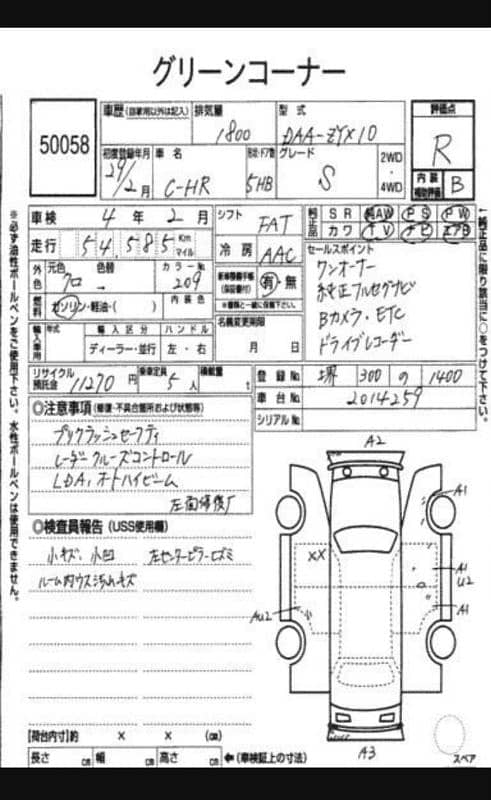 グリーンコーナー
50058
車歴(自家用以外は記入)
排気量
1800
型式
DAA-ZYX10
評価点
R
初度登録年月
29/2月
車名
C-HR
形状・ドア数
5HB
グレード
S
2WD
・
4WD
内装
補助評価
B
車検 4年2月
シフト
FAT
純正品
SR AW PS PW
カワ TV ナビ エアB
走行 54,585 Km
マイル
冷房
AAC
セールスポイント
ワンオーナー
純正フルセグナビ
Bカメラ・ETC
ドライブレコーダー
外色
元色
クロ
色替
カラーNo.
209
新車整備手帳
(保証書付)
有・無
※書類と一緒に保管下さい。
燃料
ガソリン・軽油・( )
内装色
名義変更期限
月 日
輸入車用
年式
輸入区分
ハンドル
ディーラー・並行
左・右
リサイクル
預託金
11270円
乗車定員
5人
積載量
t
登録No.
堺 300 の 1400
車台No.
2014259
シリアルNo.
◎注意事項(修復・不具合箇所および状態等)
プリクラッシュセーフティ
レーダークルーズコントロール
LDA,オートハイビーム
左面修復ｱ
◎検査員報告(USS使用欄)
小キズ、小凹 左センターピラーヒズミ
ルーム内ウス汚れキズ
A2
A1
XX
A1
U2
A1
AU2
A3
スペア
【荷台内寸】約 × × (㎝)
長さ ㎝ 幅 ㎝ 高さ ㎝ ←(車検証上の寸法)
※必ず油性ボールペンをご使用下さい。水性ボールペンは使用できません。
←純正品に限り該当に○をつけて下さい。